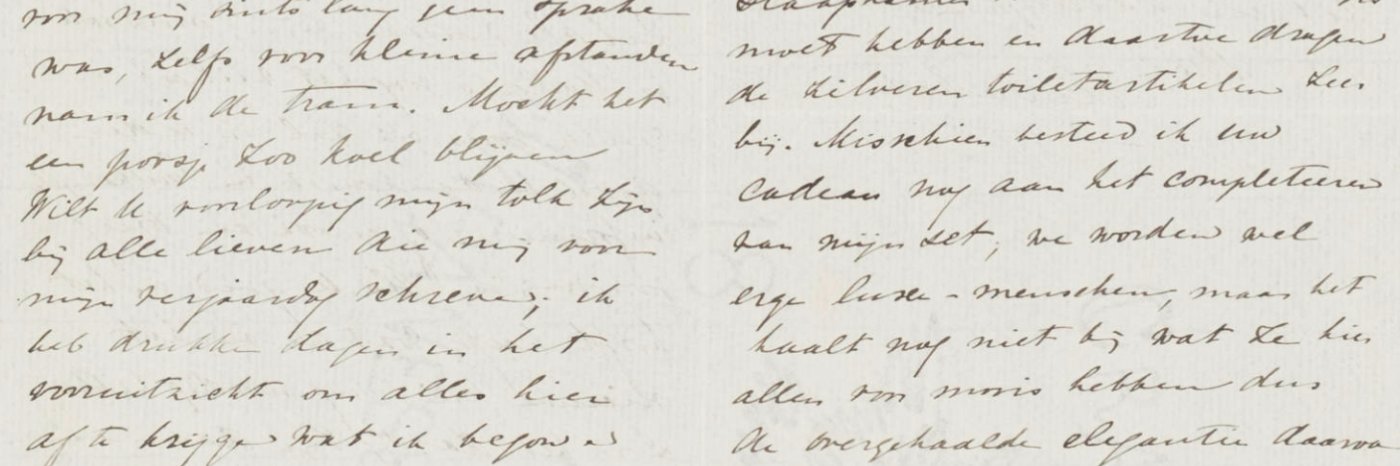 voor mij sints lang geen sprake
was, zelfs voor kleine afstanden
nam ik de tram. Mocht het
een poosje zoo koel blijven
Wilt U voorloopig mijn tolk zijn
bij alle lieven die mij voor
mijn verjaardag schreven; ik
heb drukke dagen in het
vooruitzicht om alles hier
af te krijgen wat ik begon en
moet hebben en daartoe dragen
de zilveren toiletartikelen zeer
bij. Misschien besteed ik uw
cadeau nog aan het completeeren
van mijn set, we worden wel
erge luxe-menschen, maar het
haalt nog niet bij wat ze hier
allen voor moois hebben dus
de overgehaalde elegantie daarva